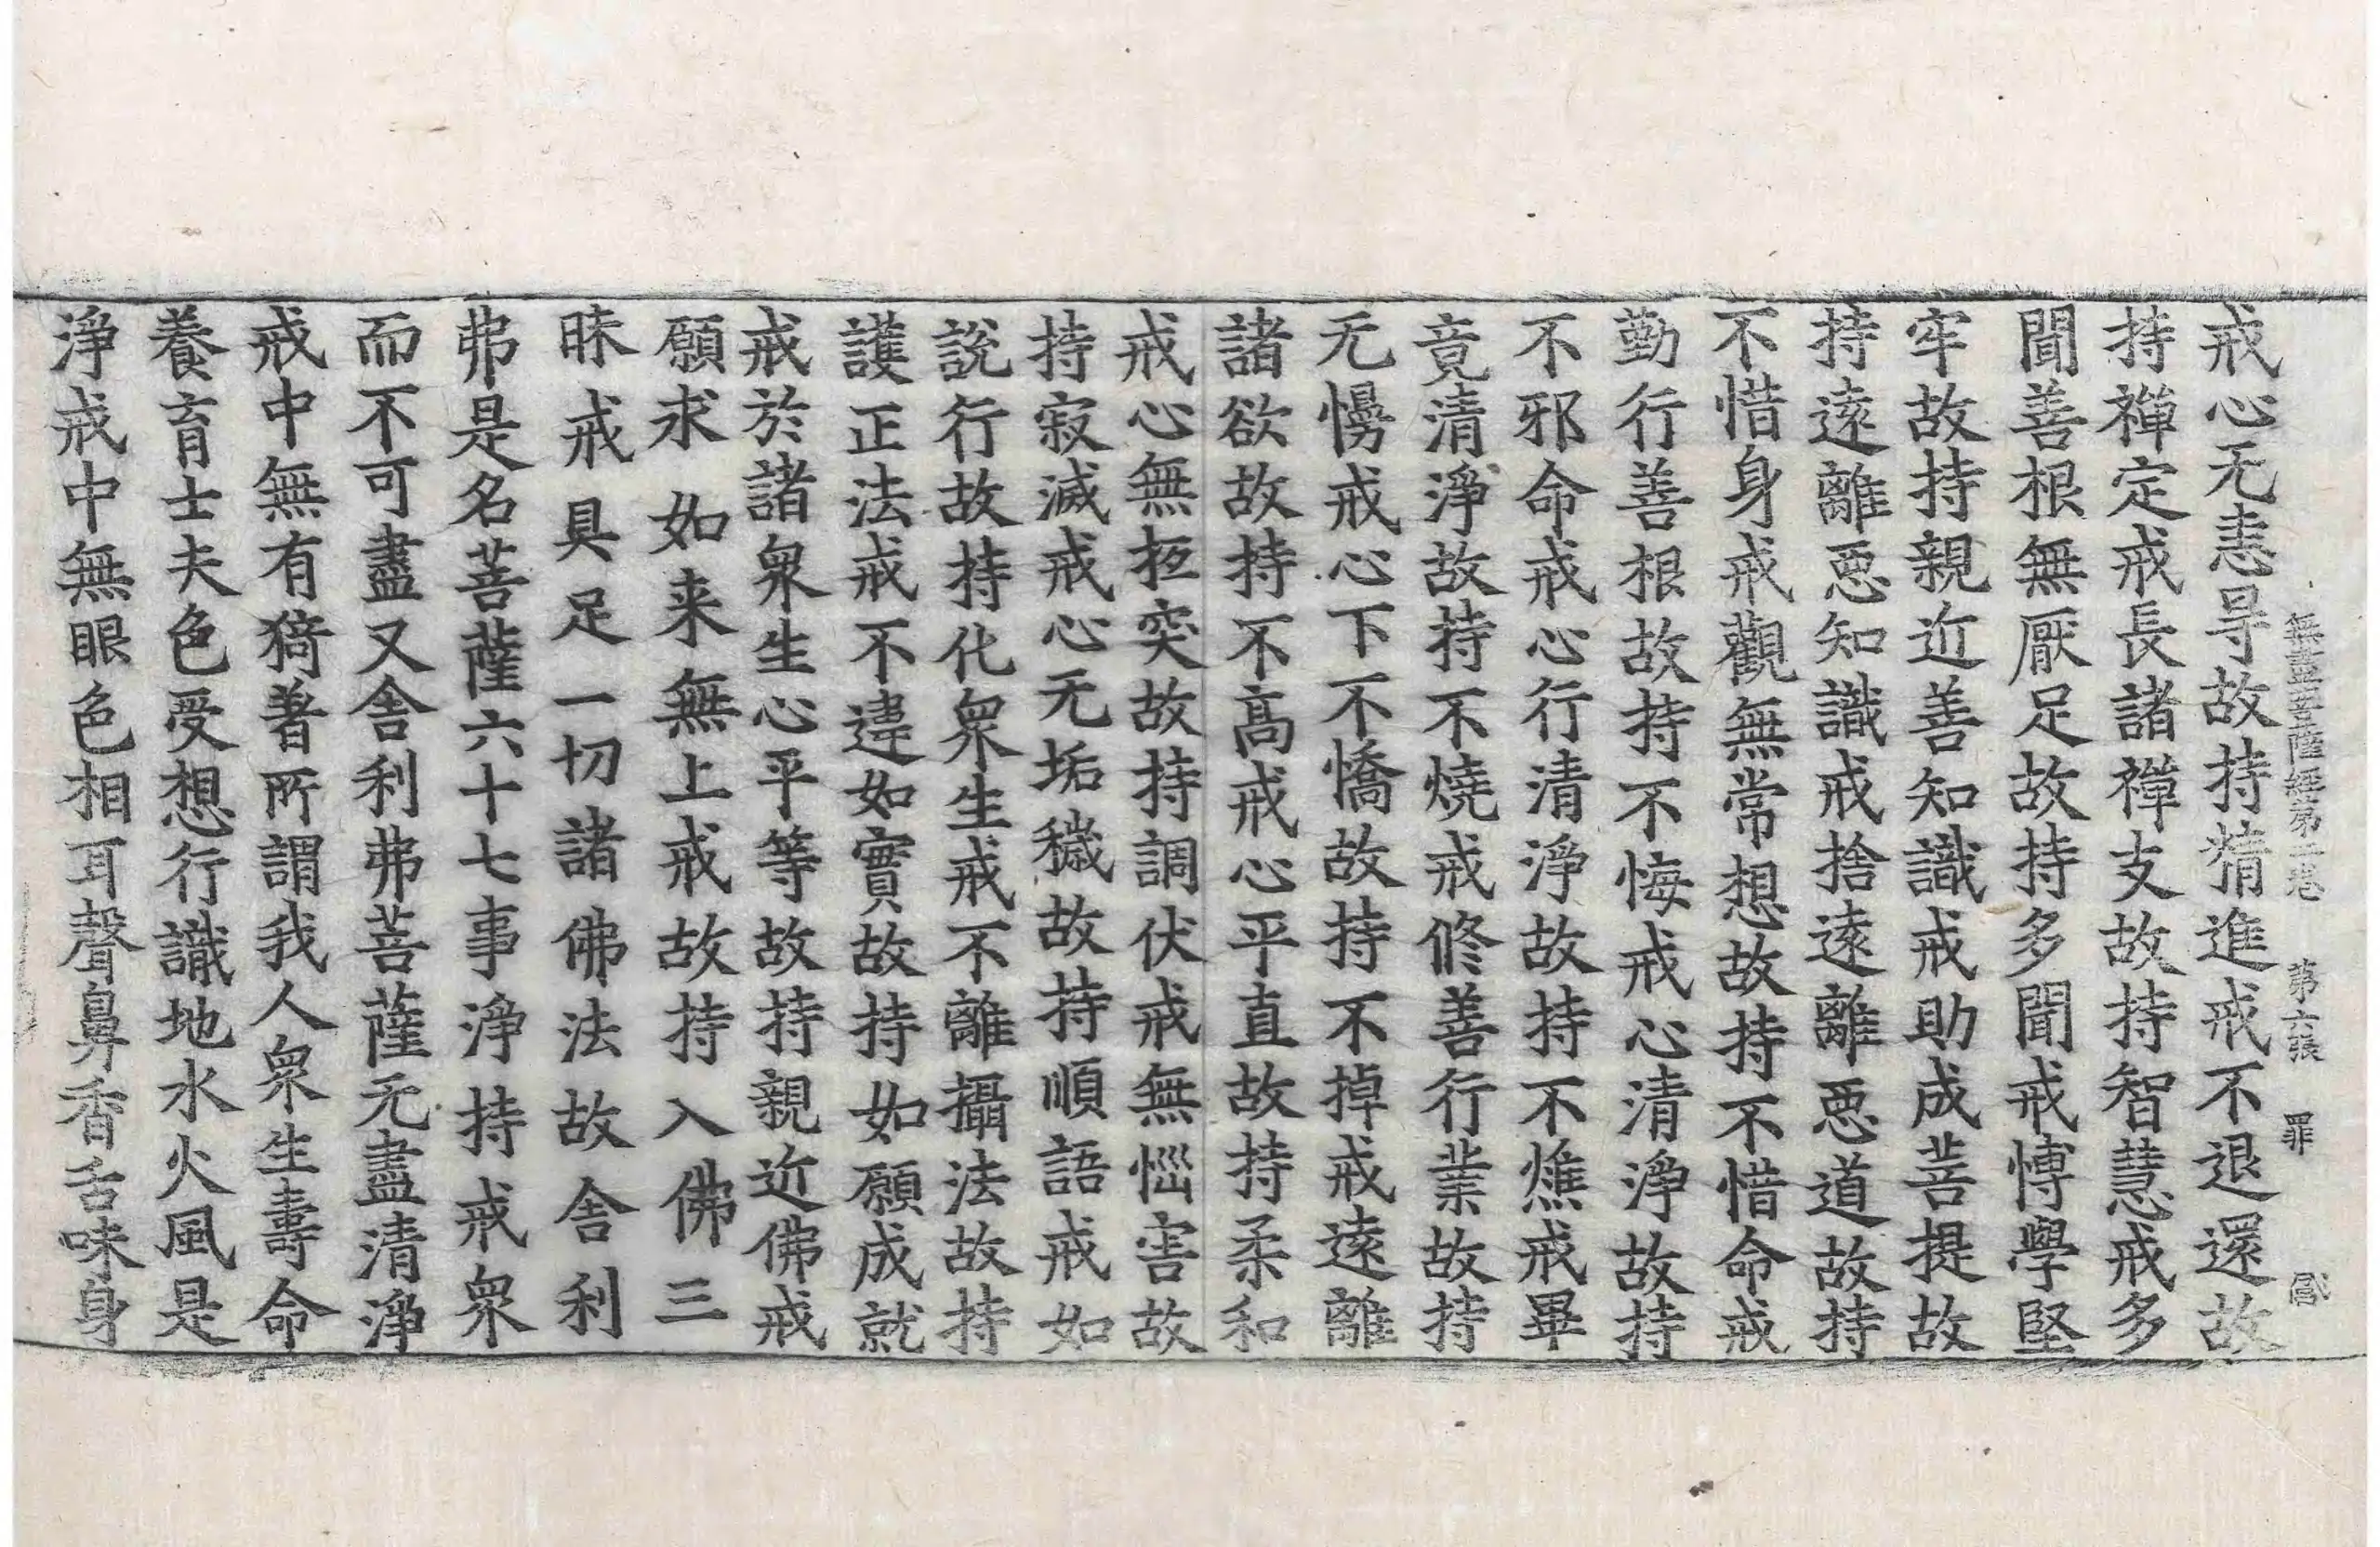 無盡意菩薩經第二卷 第六張 罪
戒心无恚㝵故持精進戒不退還故
持禪定戒長諸禪支故持智慧戒多
聞善根無厭足故持多聞戒博學堅
牢故持親近善知識戒助成菩提故
持遠離惡知識戒捨遠離惡道故持
不惜身戒觀無常想故持不惜命戒
勤行善根故持不悔戒心清淨故持
不邪命戒心行清淨故持不燋戒畢
竟清淨故持不燒戒修善行業故持
无慢戒心下不憍故持不掉戒遠離
諸欲故持不高戒心平直故持柔和
戒心無拒突故持調伏戒無惱害故
持寂滅戒心无垢穢故持順語戒如
說行故持化衆生戒不離攝法故持
護正法戒不違如實故持如願成就
戒於諸衆生心平等故持親近佛戒
願求如来無上戒故持入佛三
昧戒具足一切諸佛法故舍利
弗是名菩薩六十七事淨持戒衆
而不可盡又舍利弗菩薩无盡清淨
戒中無有猗著所謂我人衆生壽命
養育士夫色受想行識地水火風是
淨戒中無眼色相耳聲鼻香舌味身